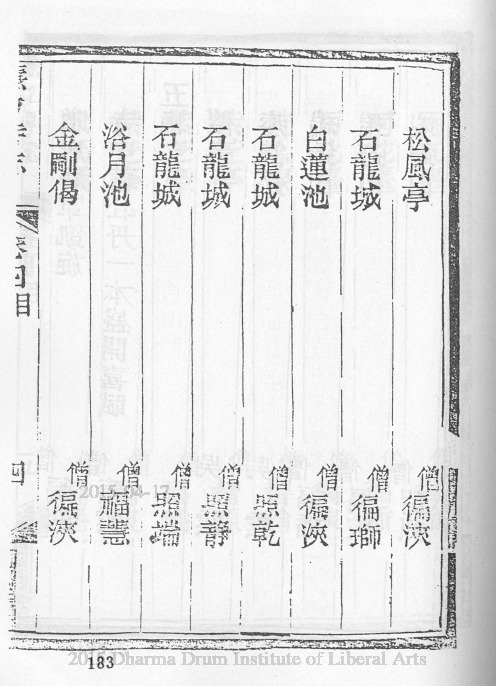 松風亭 僧徧浹
石龍城 僧徧瑡
白蓮池 僧徧浹
石龍城 僧照乾
石龍城 僧照靜
石龍城 僧照端
浴月池 僧福慧
金剛偈 僧徧浹
卷四目 四
183
2015 Dharma Drum Institute of Liberal Arts